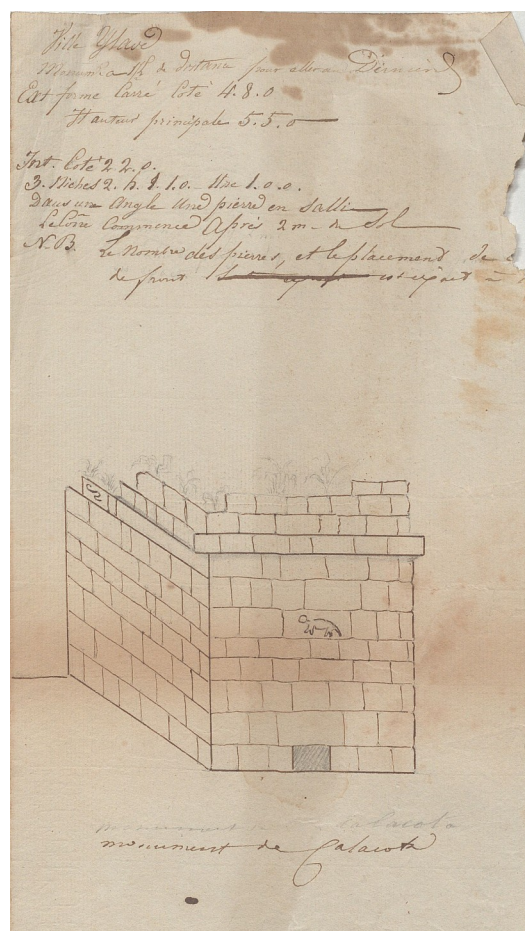 Ville Ylavé
Monum
Ext forme Carré Coté 4.8.0
Hauteur principale 5.5.0
Int. Coté 2.2.0.
3. Niches 2. h. 1.0.
Dans un Angle Une pierre en Salli
Le Cone Commence Après 2 m. du Sol
N.B. Le Nombre des pierres, et le placement de
de front est
monument de Calacota
monument de Calacota